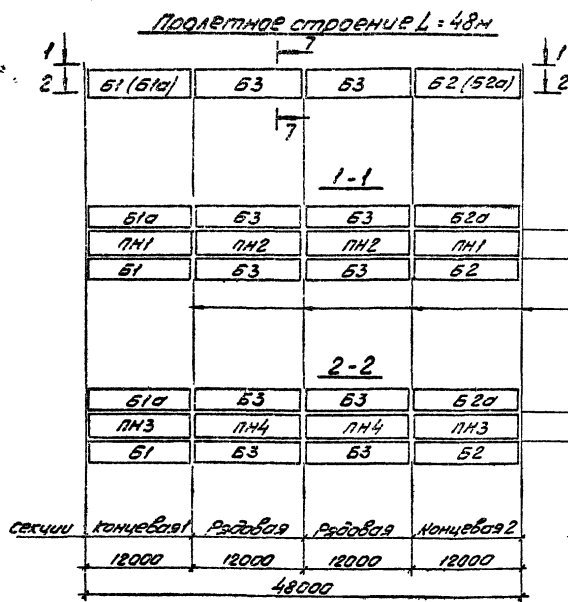 Пролетное строение L = 48м
7
1 1
2 Б1 (Б1а) Б3 Б3 Б2 (Б2а) 2
7
1-1
Б1а Б3 Б3 Б2а
ПН1 ПН2 ПН2 ПН1
Б1 Б3 Б3 Б2
2-2
Б1а Б3 Б3 Б2а
ПН3 ПН4 ПН4 ПН3
Б1 Б3 Б3 Б2
секции Концевая1 Рядовая Рядовая Концевая2
12000 12000 12000 12000
48000